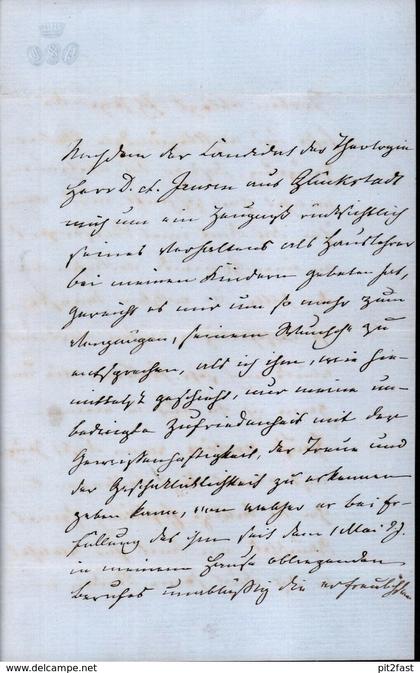 Nachdem der Candidat der Theologie
Herr D. A. Jensen aus Glückstadt
mich um ein Zeugniß rücksichtlich
seines Verhaltens als Hauslehrer
bei meinen Kindern gebeten hat,
gereicht es mir um so mehr zum
Vergnügen, seinem Wunsche zu
entsprechen, als ich ihm, wie hie-
mittelst geschieht, nur meine un-
bedingte Zufriedenheit mit der
Gewissenhaftigkeit, der Treue und
der Geschicklichkeit zu erkennen
geben kann, von welcher er bei Er-
füllung des ihm seit dem 1 Mai
in meinem Hause obliegenden
Berufes unablässig die erfreulichsten
pit2fast